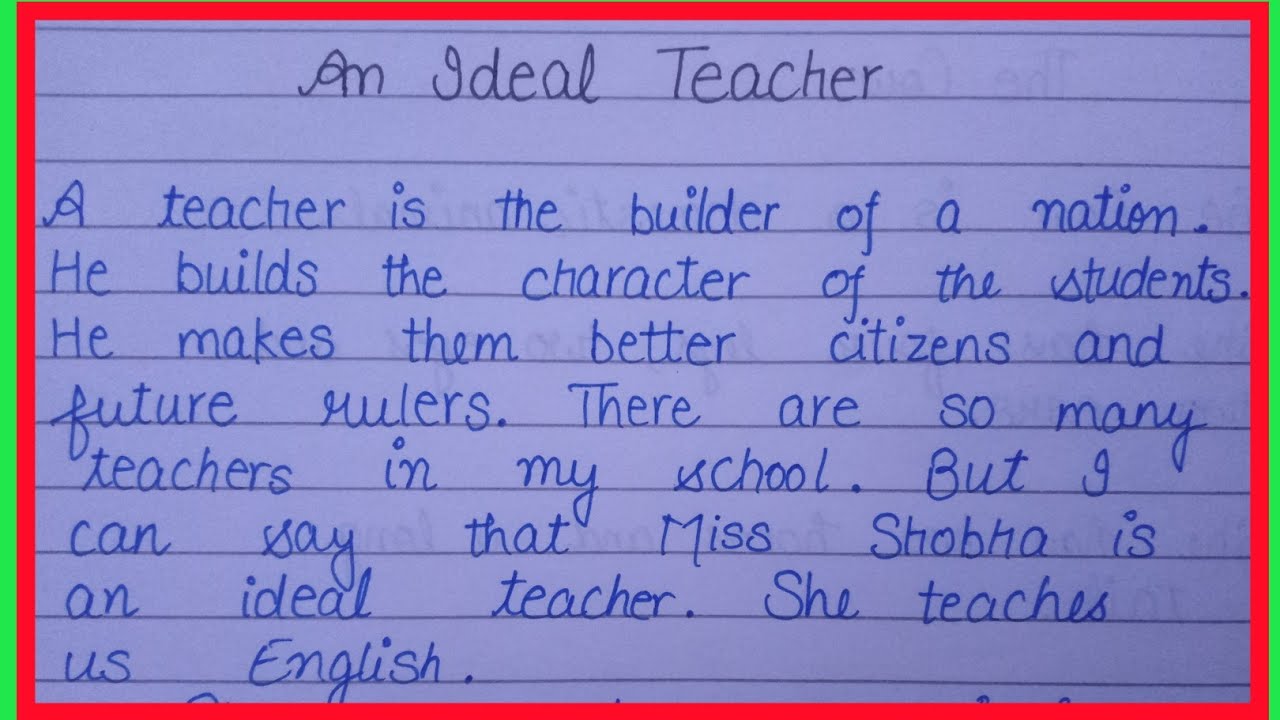 An Ideal Teacher
A teacher is the builder of a nation.
He builds the character of the students.
He makes them better citizens and
future rulers. There are so many
teachers in my school. But I
can say that Miss Shobha is
an ideal teacher. She teaches
us English.